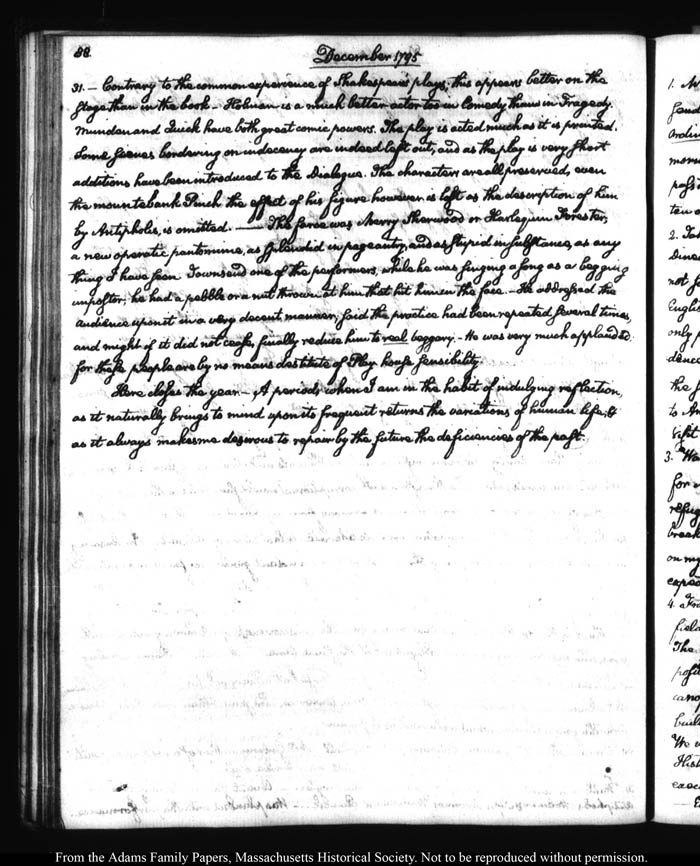 88.
December 1795
31. — Contrary to the common experience of Shakespears plays, this appears better on the
stage than in the book — Holman is a much better actor too in Comedy than in Tragedy.
Munden and Quick have both great comic powers. The play is acted much as it is printed.
Some scenes bordering on indecency are indeed left out, and as the play is very short
additions have been introduced to the Dialogue. The characters are all preserved, even
the mountebank Pinch the effect of his figure however is lost as the description of him
by Antipholis, is omitted. —— The farce was Merry Sherwood or Harlequin Forester,
a new operatic pantomime, as splendid in pageantry, and as stupid in substance, as any
thing I have seen. Townsend one of the performers, while he was singing a song as a begging
impostor; he had a pebble or a nut thrown at him that hit him in the face. — He addressed the
audience upon it in a very decent manner, said the practice had been repeated several times,
and might if it did not cease, finally reduce him to real beggary. — He was very much applauded
for these people are by no means destitute of Play house sensibility.
Here closes the year — A period, when I am in the habit of indulging reflection,
as it naturally brings to mind upon its frequent returns the variations of human life, &
as it always makes me desirous to repair by the future the deficiencies of the past.
1.
2.
not
only
the
to
3.
for
refuge
break
on my
4.
field
The
We
From the Adams Family Papers, Massachusetts Historical Society. Not to be reproduced without permission.